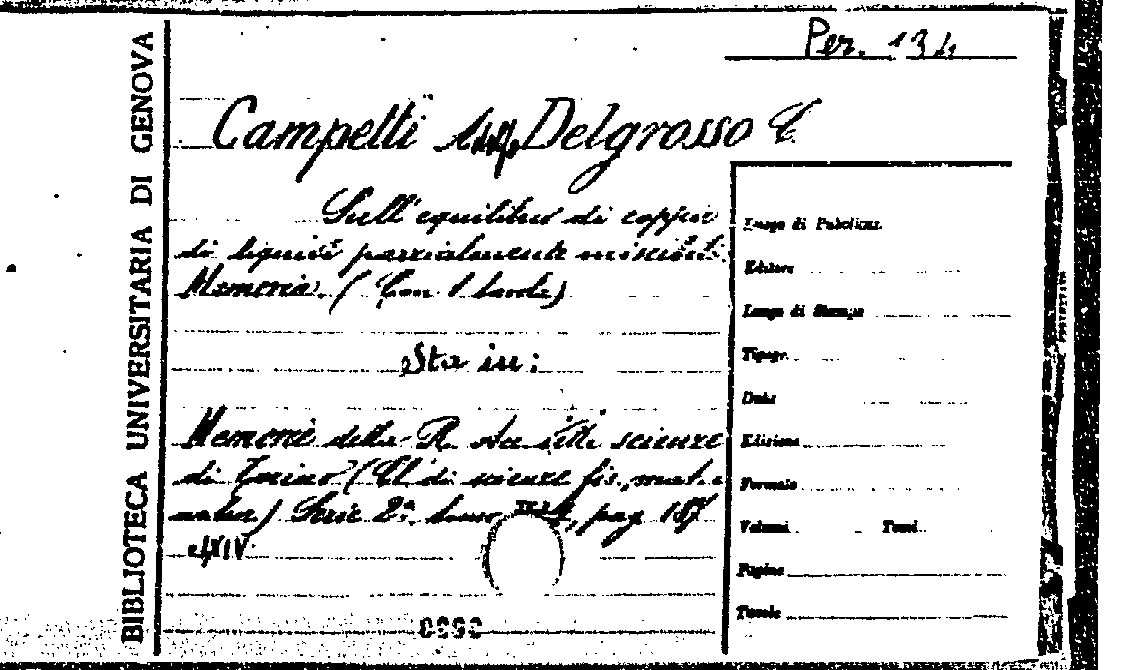 Per. 134
BIBLIOTECA UNIVERSITARIA DI GENOVA
Campetti Delgrosso C.
Sull'equilibrio di coppie
di liquidi parzialmente miscibili.
Memoria. (Con 1 tavola)
Sta in:
Memorie della R. Acc. delle scienze
di Torino (Cl. di scienze fis., mat. e
natur.) Serie 2ª, tomo pag 187
Luogo di Pubblicaz.
Editore
Luogo di Stampa
Tipogr.
Data
Edizione
Formato
Volumi Tomi
Pagine
Tavole